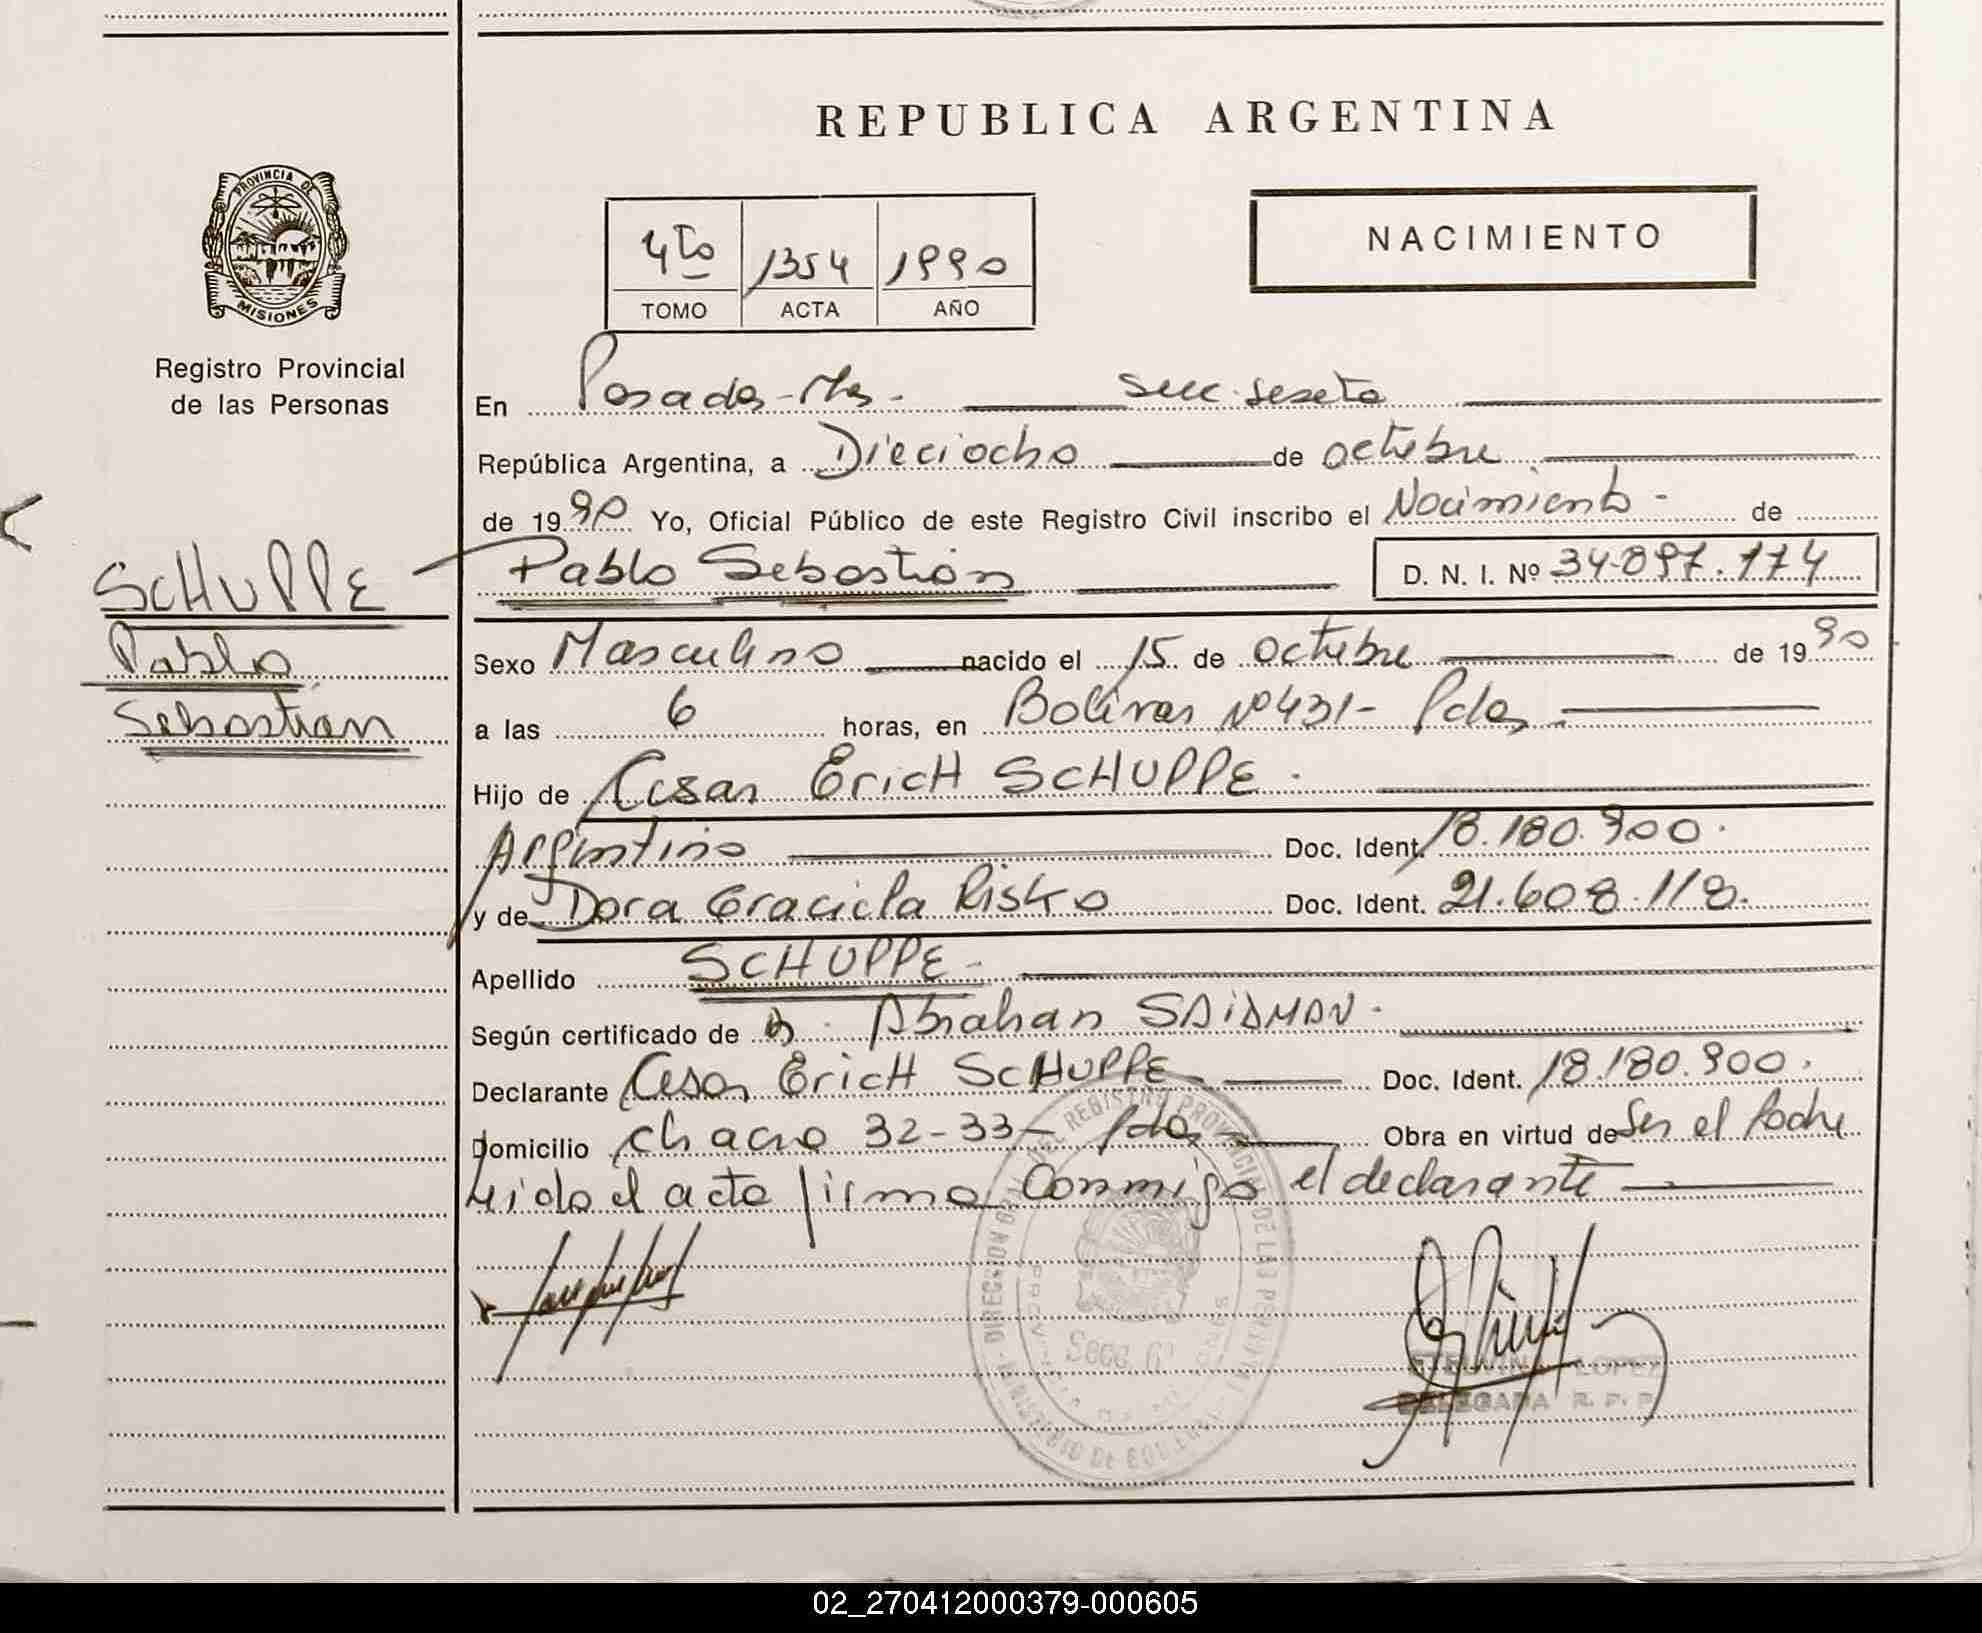 REPUBLICA ARGENTINA
PROVINCIA DE
MISIONES
Registro Provincial
de las Personas
4to 1354 1990
TOMO ACTA AÑO
NACIMIENTO
En Posadas - Mnes. - secc. sexta
República Argentina, a Dieciocho de octubre
de 1990 Yo, Oficial Público de este Registro Civil inscribo el Nacimiento - de
Pablo Sebastián D. N. I. Nº 34.897.174
SCHUPPE
Pablo
Sebastián
Sexo Masculino nacido el 15 de Octubre de 1990
a las 6 horas, en Bolívar Nº 431 - Pdas.
Hijo de Cesar Erich SCHUPPE.
Argentino Doc. Ident. 18.180.900.
y de Dora Graciela Risko Doc. Ident. 21.608.118.
Apellido SCHUPPE -
Según certificado de Abrahan SAIDMAN.
Declarante Cesar Erich SCHUPPE Doc. Ident. 18.180.900.
Domicilio chacra 32-33 - Pdas. Obra en virtud de Ser el Padre
Leida el acta firma conmigo el declarante
DIRECCION GRAL. DEL REGISTRO PROVINCIAL DE LAS
Secc. 6ª
LOPEZ
DELEGADA R. P. P.
02_270412000379-000605